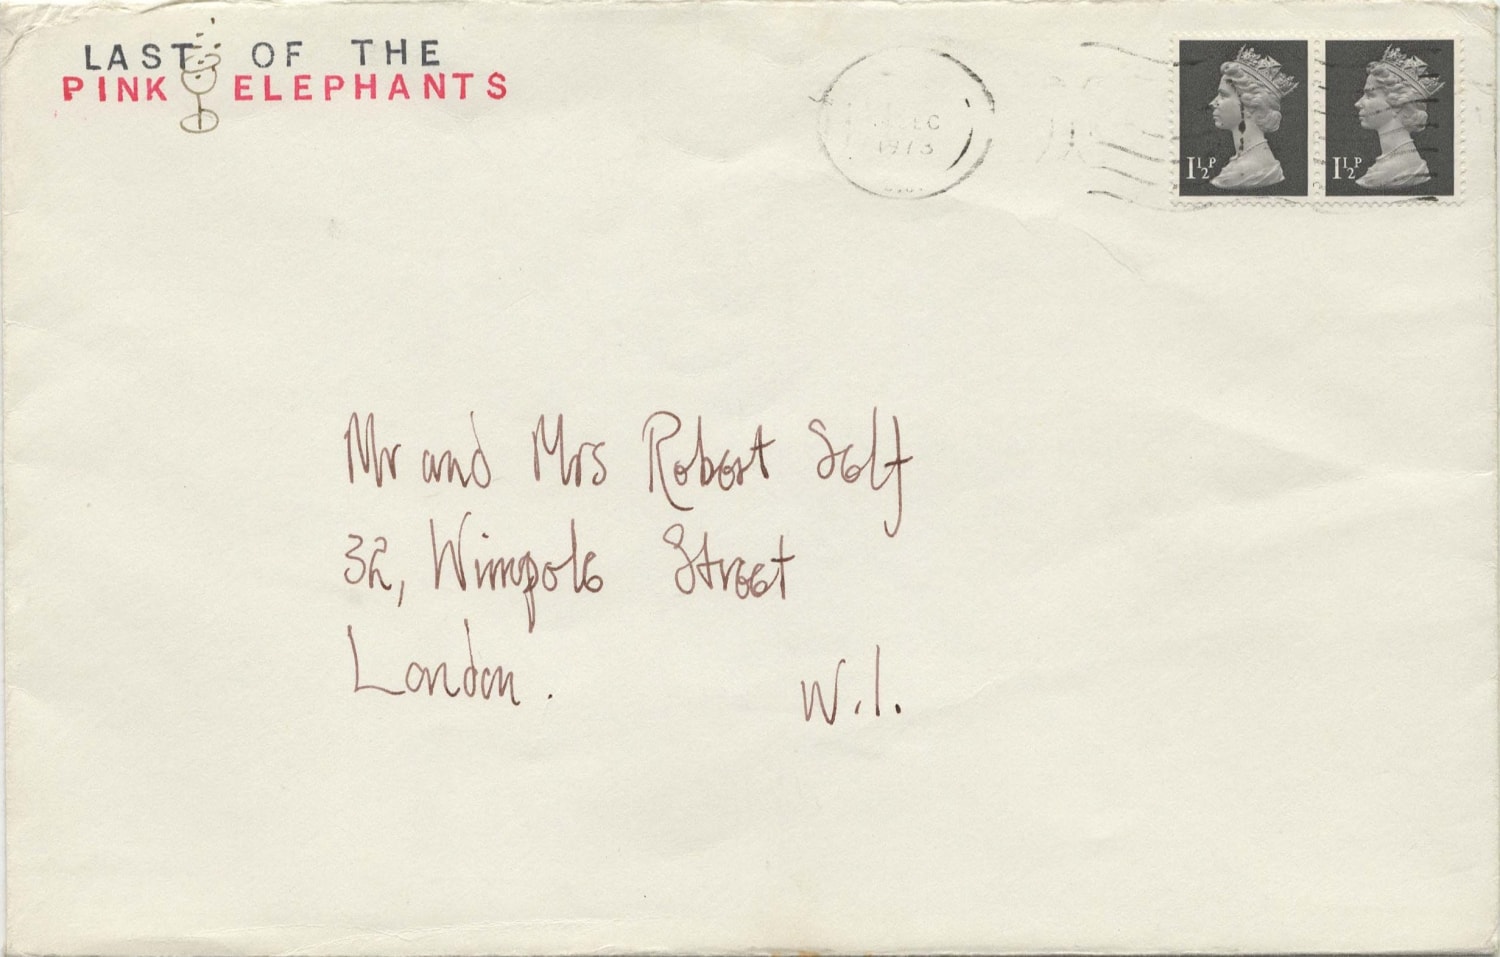 LAST OF THE
PINK ELEPHANTS
1973
1½P
1½P
Mr and Mrs Robert Self
32, Wimpole Street
London. W.1.